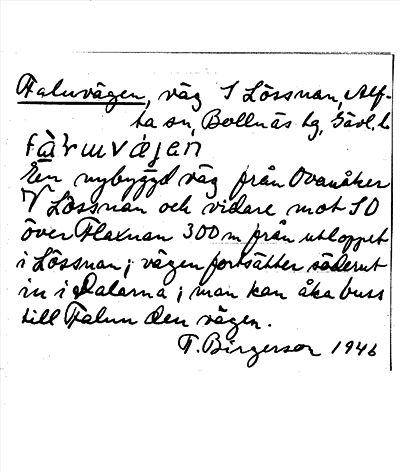 Faluvägen, väg S Lössnan, Alf-
ta sn, Bollnäs tg, Gävl. l.
fà̱ɫɯvǽgen
En nybyggd väg från Ovanåker
V Lössnan och vidare mot SO
över Flaxnan 300 m från utloppet
i Lössnan; vägen fortsätter söderut
in i Dalarna; man kan åka buss
till Falun den vägen.
F. Birgerson 1946